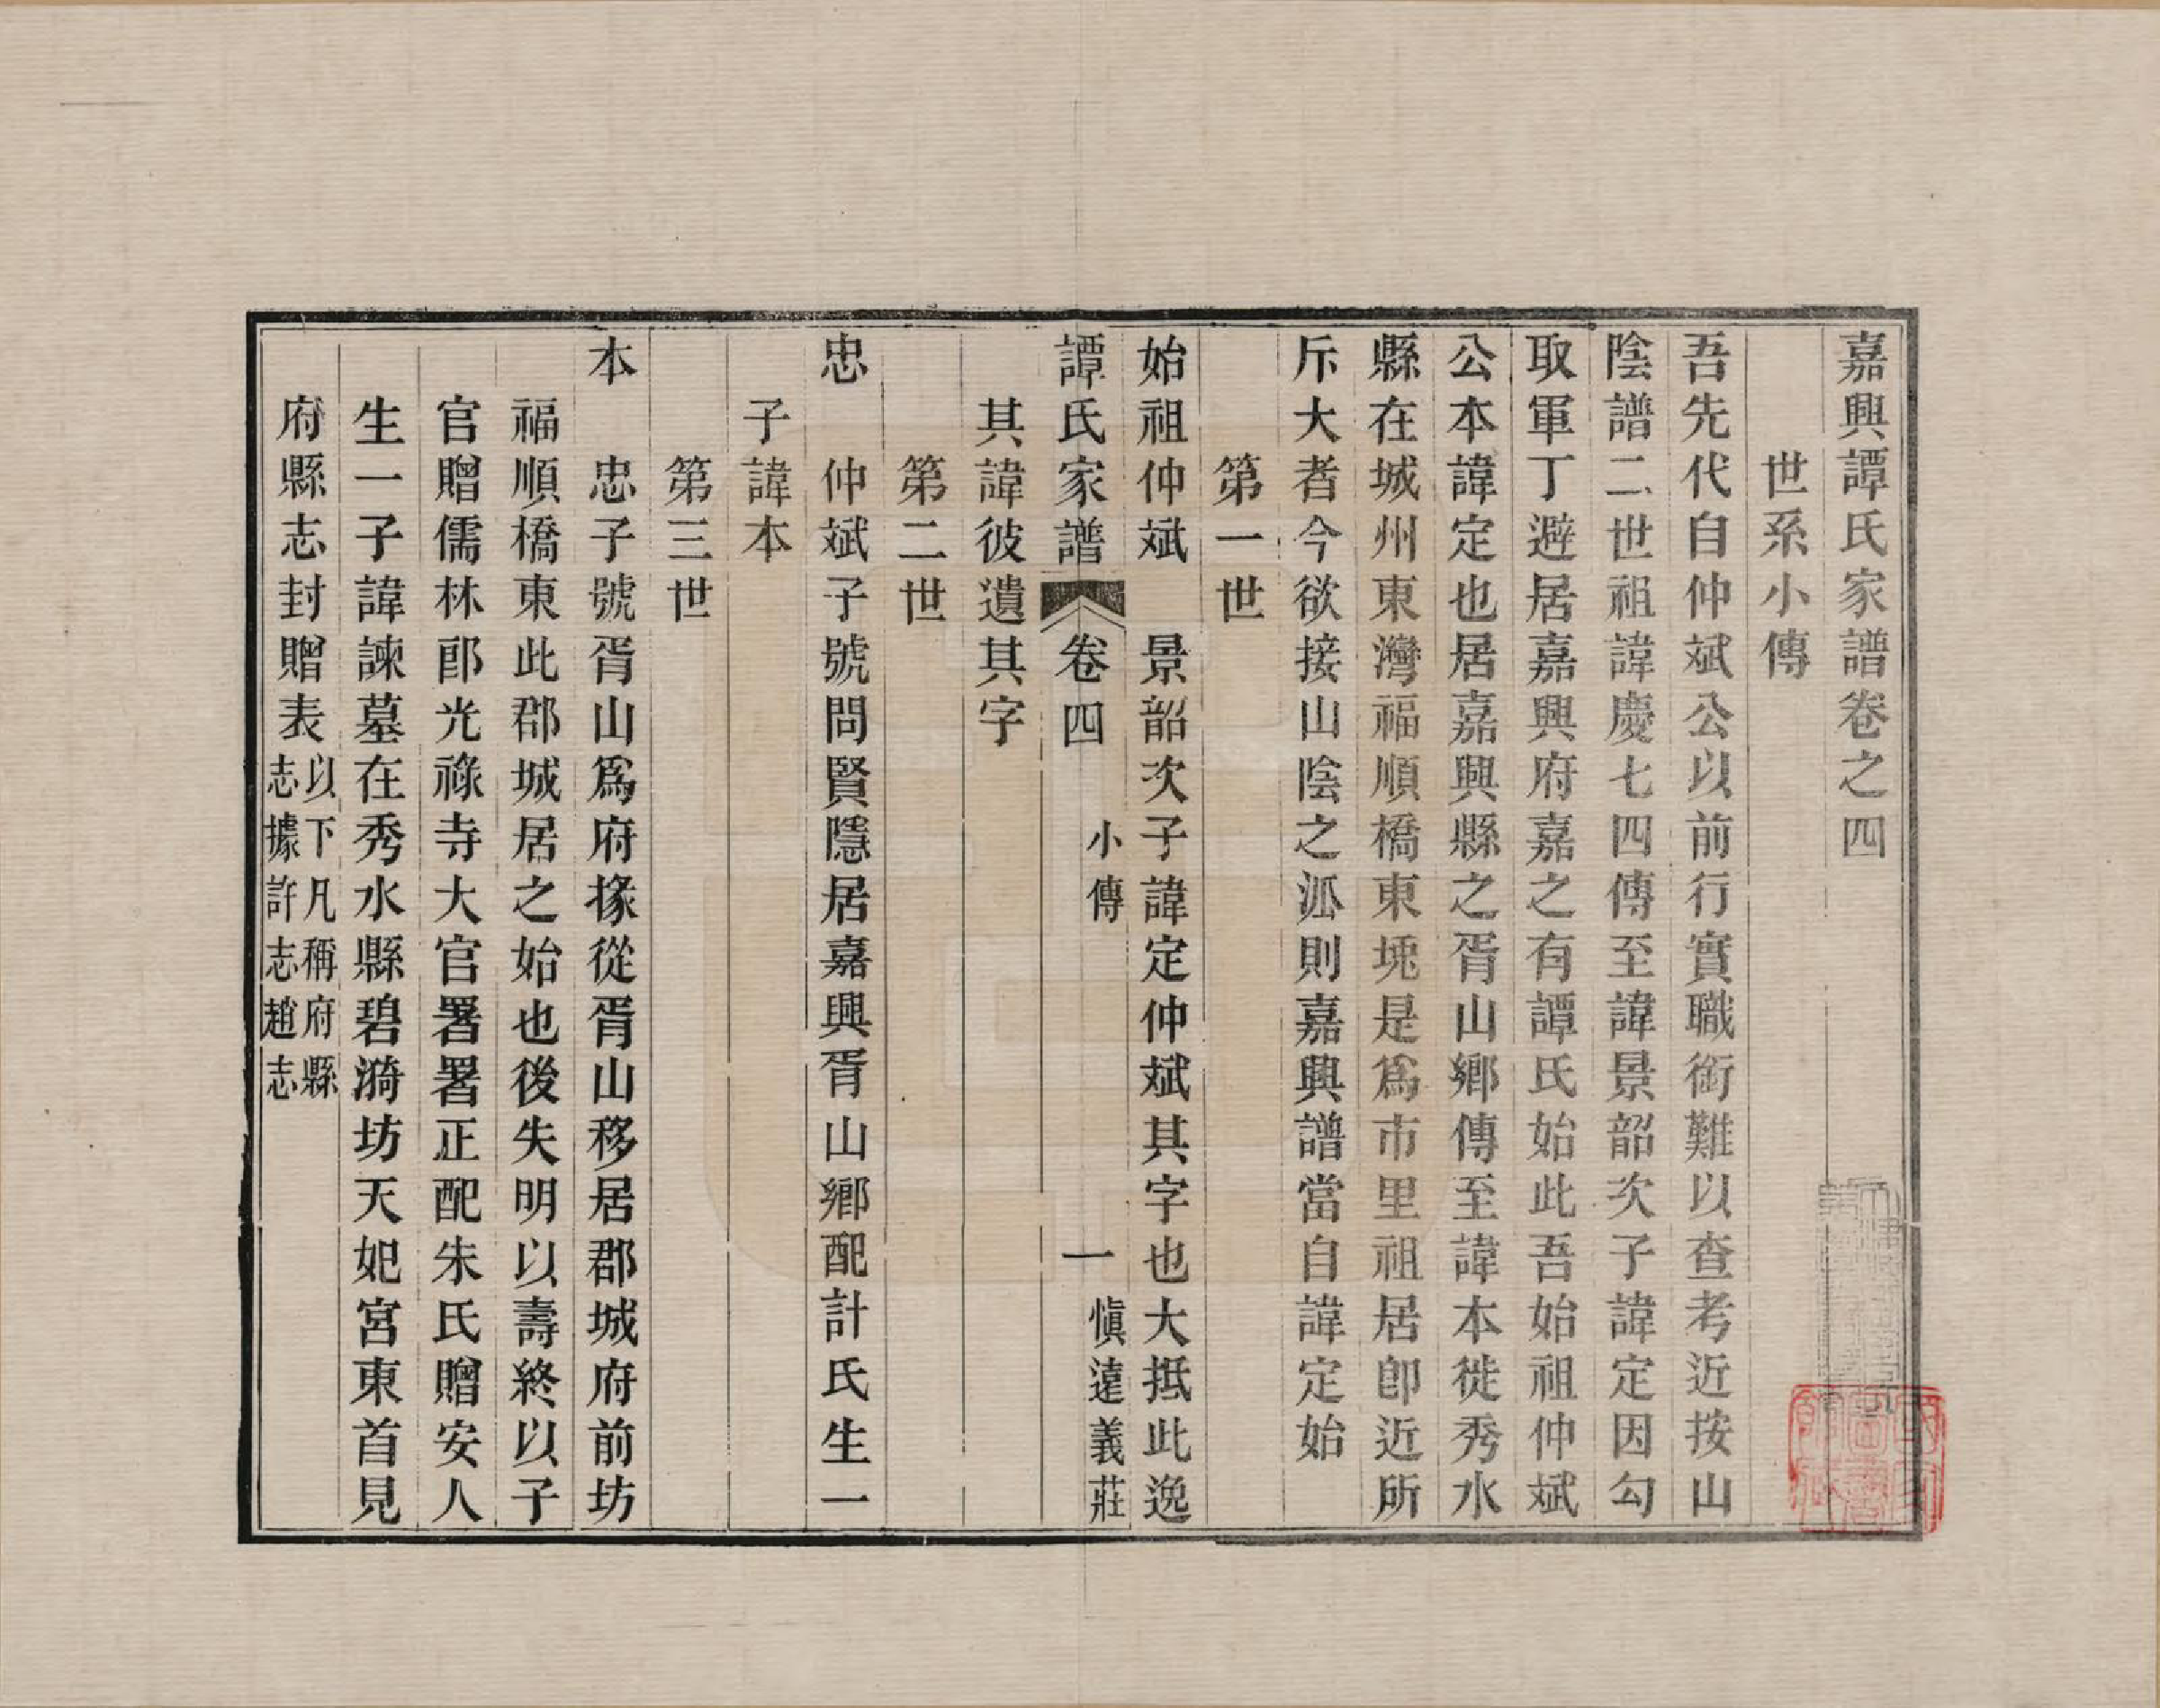 嘉興譚氏家譜卷之四
世系小傳
吾先代自仲斌公以前行實職銜難以查考近按山
陰譜二世祖諱慶七四傳至諱景韶次子諱定因勾
取軍丁避居嘉興府嘉之有譚氏始此吾始祖仲斌
公本諱定也居嘉興縣之胥山鄉傳至諱本徙秀水
縣在城州東灣福順橋東堍是爲市里祖居卽近所
斥大者今欲接山陰之派則嘉興譜當自諱定始
第一世
始祖仲斌　景韶次子諱定仲斌其字也大抵此逸
譚氏家譜　卷四　小傳　一　愼遠義莊
其諱彼遺其字
第二世
忠　仲斌子號問賢隱居嘉興胥山鄉配計氏生一
子諱本
第三世
本　忠子號胥山爲府掾從胥山移居郡城府前坊
福順橋東此郡城居之始也後失明以壽終以子
官贈儒林郎光祿寺大官署署正配朱氏贈安人
生一子諱諫墓在秀水縣碧漪坊天妃宮東首見
府縣志封贈表以下凡稱府縣
志據許志趙志